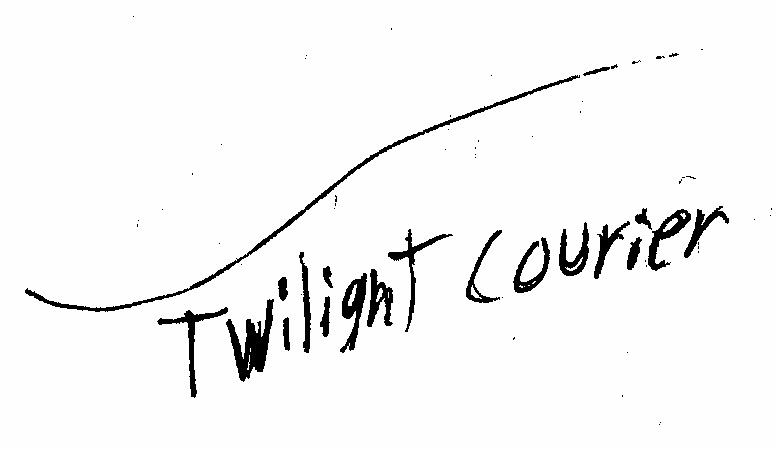 Twilight Courier